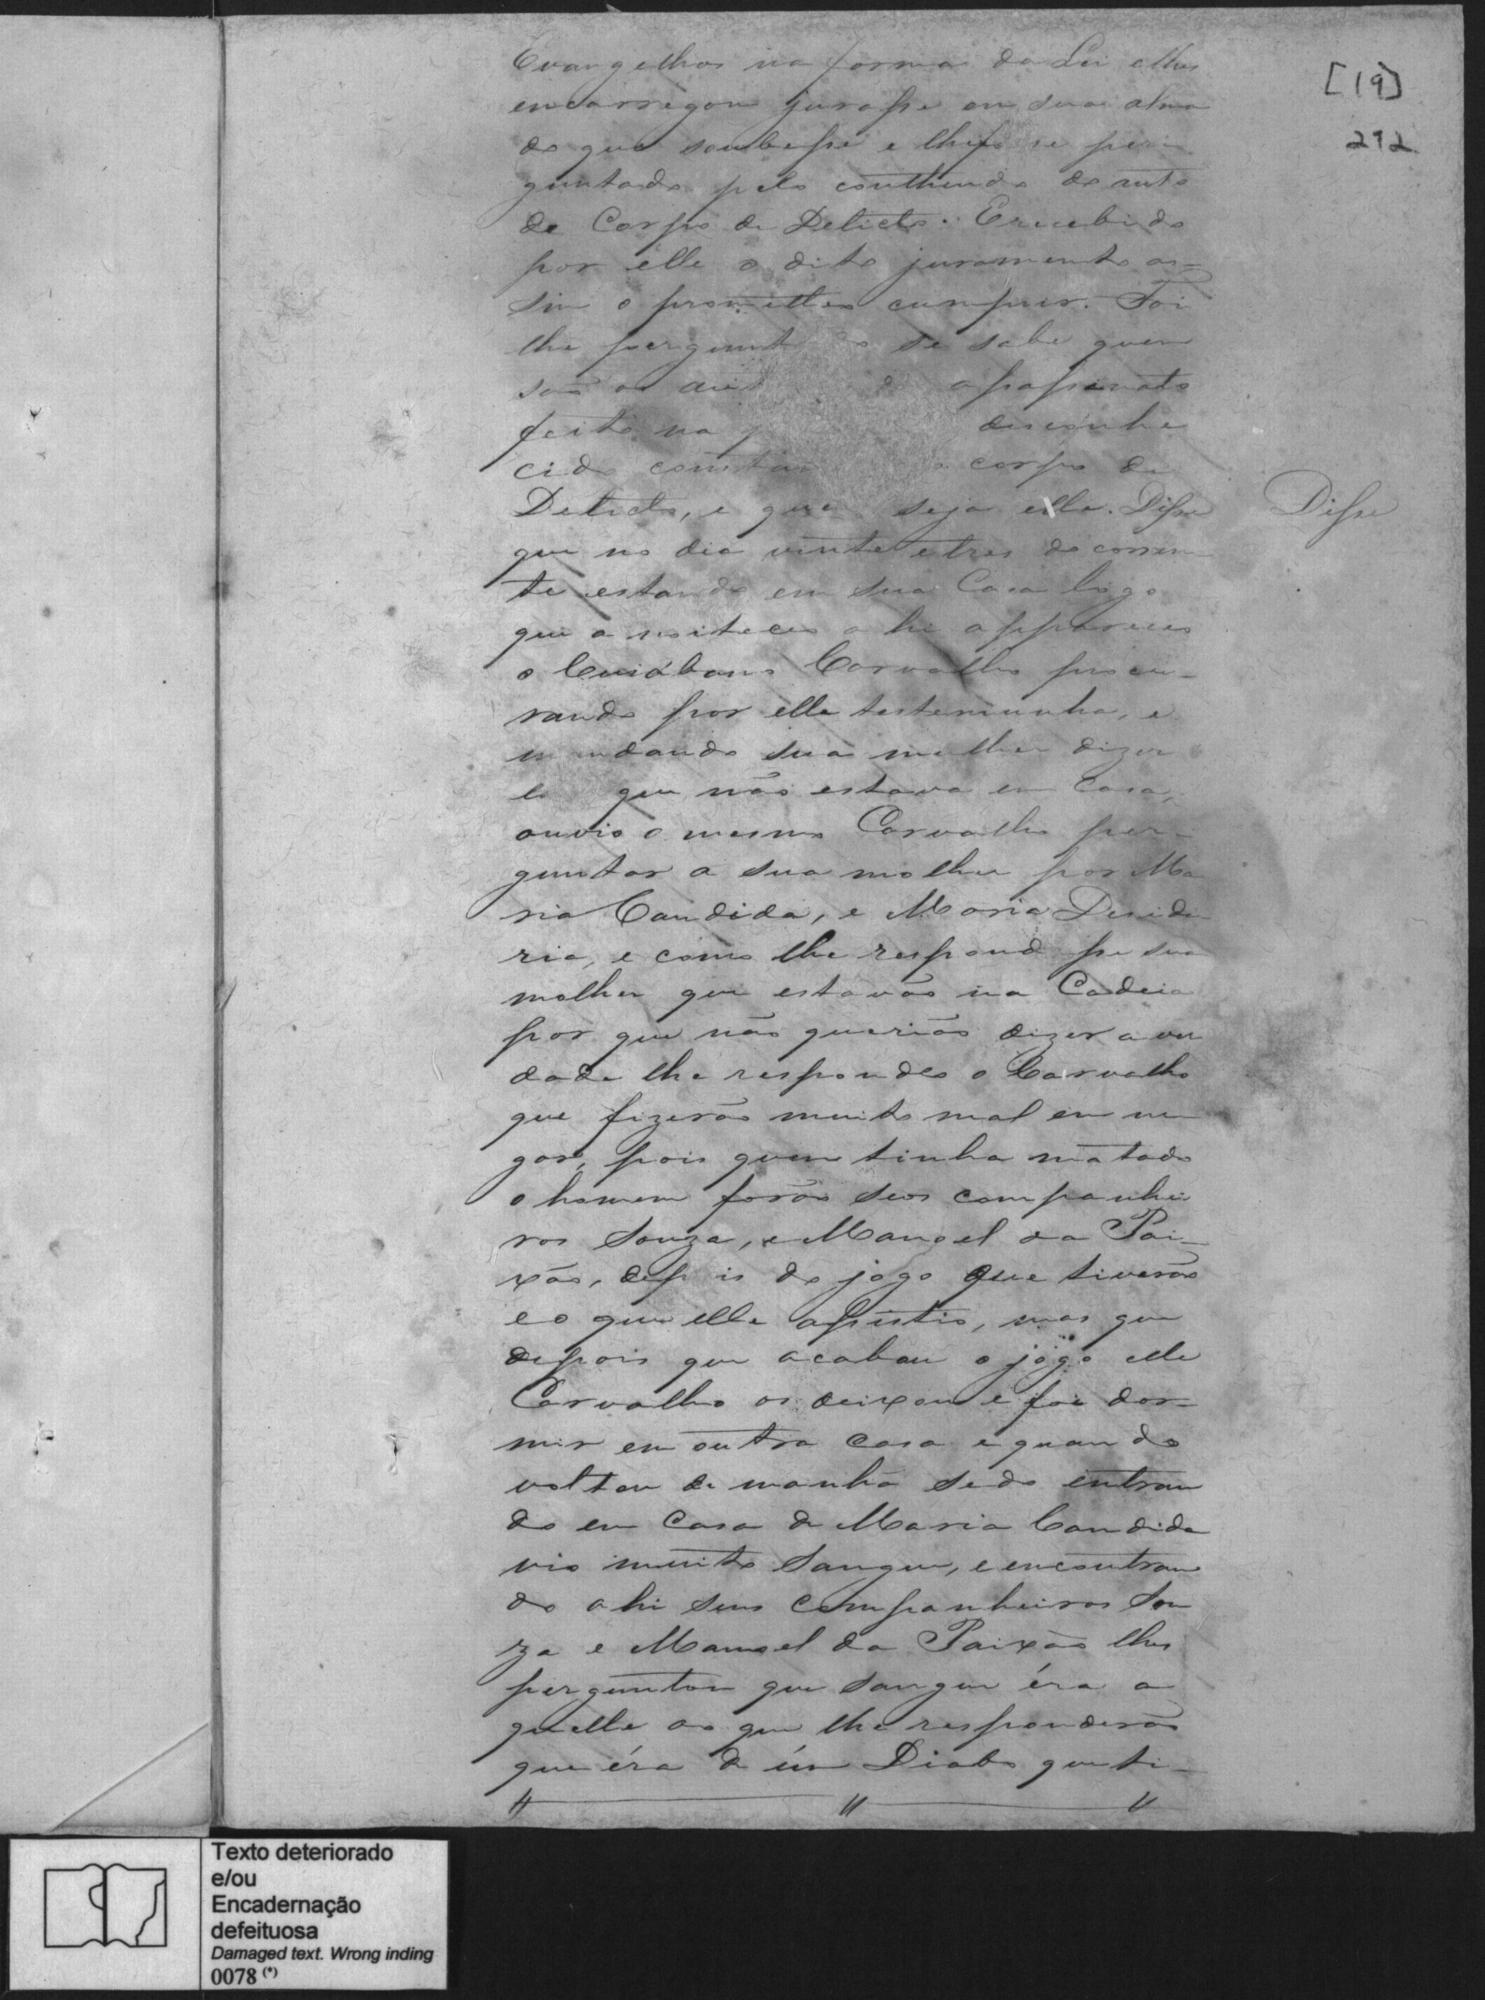 [19]
292
Evangelhos na forma da Lei e lhes
encarregou jurasse em sua alma
do que soubesse e lhe fosse per
guntado pelo conthendo do auto
de Corpo de Delicto. E recebido
por elle o dito juramento as-
sim o prometteo cumprir. Foi
lhe pergunt do se sabe quem
são os assassinato
feito na desconhe
cido corpo de
Delicto, e que seja elle. Disse
Disse
que no dia vinte e tres do corren
te estando em sua Casa logo
que a noiteceo a hi appareceo
o Cuiábano Carvalho procu-
rando por elle testemunha, e
mandando sua mulher dizer
que não estava em Casa,
ouvio o mesmo Carvalho per-
guntar a sua molher por Ma
ria Candida, e Maria Deside
ria, e como lhe respond sse sua
molher que estavão na Cadeia
por que não querião dizer a ver
dade lhe respondeo o Carvalho
que fizerão muito mal em ne
gar, pois quem tinha matado
o homem forão seos companhei
ros Souza, e Manoel da Pai-
xão, depois do jogo que tiverão
e o que elle assistio, mas que
depois que acabou o jogo elle
Carvalho os deixou e foi dor-
mir em outra casa e quando
voltou de manhã sedo entran
do em Casa de Maria Candida
vio muito Sangue, e encontran
do a hi seus Companheiros Sou
za e Manoel da Paixão lhes
perguntou que sangue éra a
quelle ao que lhe responderão
que éra de úm Diabo que ti-
Texto deteriorado
e/ou
Encadernação
defeituosa
Damaged text. Wrong inding
0078 (*)